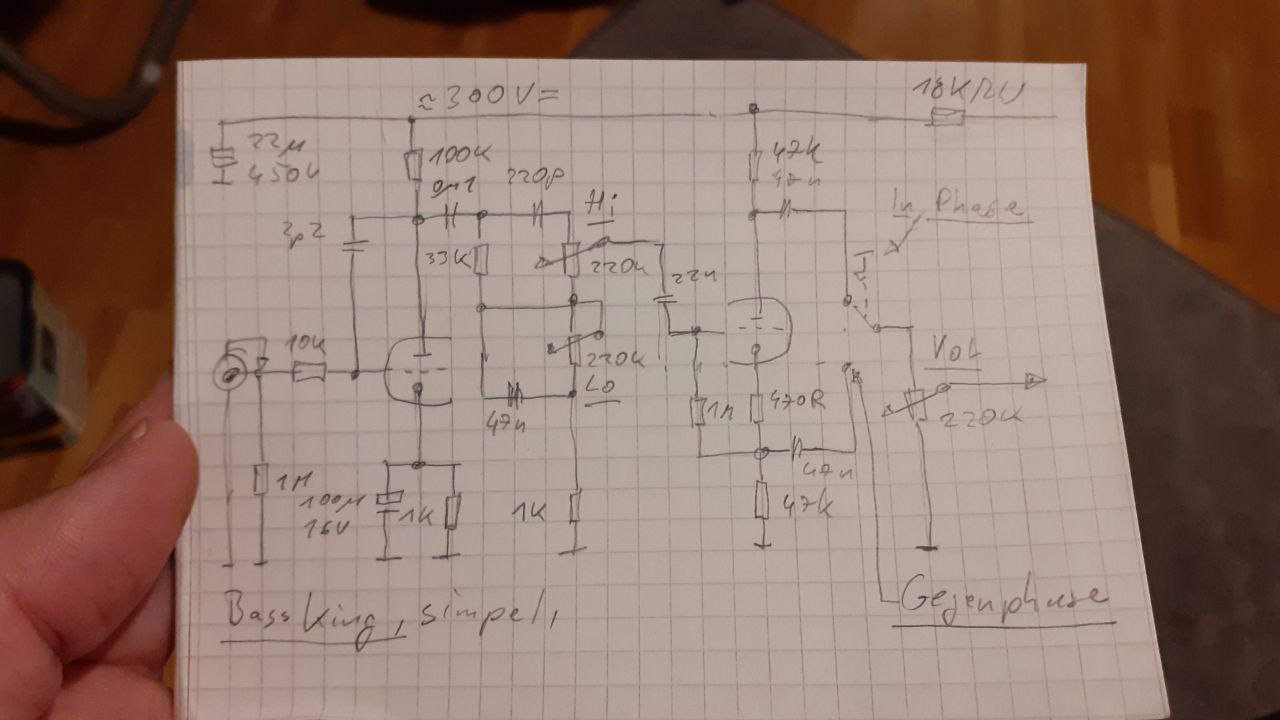 ≈300V=
18K/2W
22µ
450V
100K
0µ1
220p
47K
47n
Hi
In Phase
2p2
33K
220K
22n
10K
220K
Lo
Vol
47n
1M
470R
220K
47n
1M
100µ
16V
1K
1K
47k
Gegenphase
Bass King, simpel,